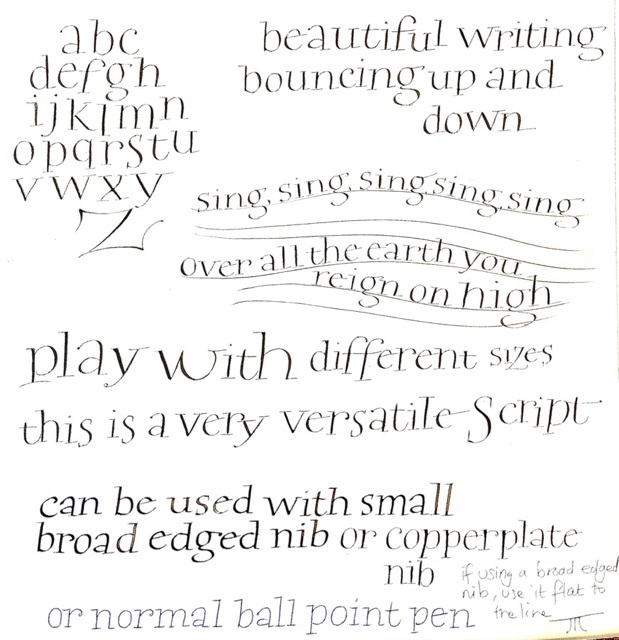 abc
defgh
ijklmn
opqrstu
vwxy
z
beautiful writing
bouncing up and
down
sing, sing, sing sing, sing
over all the earth you
reign on high
play with different sizes
this is a very versatile Script
can be used with small
broad edged nib or copperplate
nib
if using a broad edged
nib, use it flat to
the line
or normal ball point pen